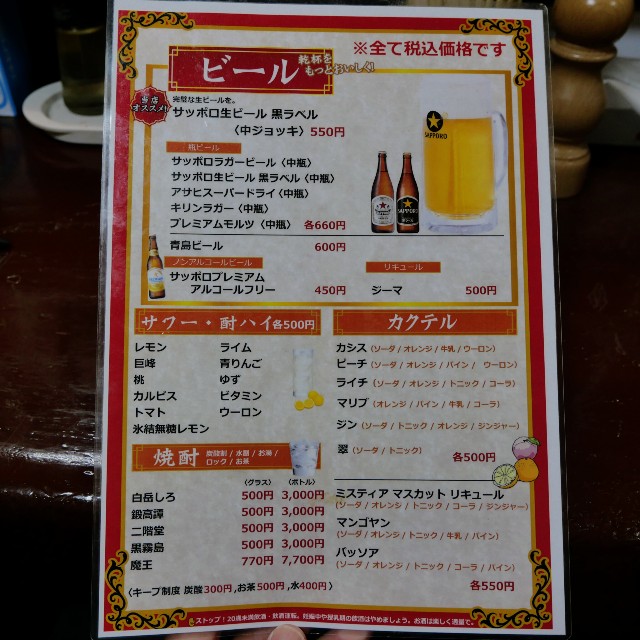 ※全て税込価格です
ビール 乾杯を
もっとおいしく!
当店
オススメ!
完璧な生ビールを。
サッポロ生ビール 黒ラベル
〈中ジョッキ〉550円
瓶ビール
サッポロラガービール〈中瓶〉
サッポロ生ビール 黒ラベル〈中瓶〉
アサヒスーパードライ〈中瓶〉
キリンラガー〈中瓶〉
プレミアムモルツ〈中瓶〉 各660円
青島ビール 600円
ノンアルコールビール
サッポロプレミアム
アルコールフリー 450円
リキュール
ジーマ 500円
SAPPORO
SAPPORO
サワー・酎ハイ 各500円
レモン ライム
巨峰 青りんご
桃 ゆず
カルピス ビタミン
トマト ウーロン
氷結無糖レモン
焼酎 炭酸割 / 水割 / お湯 /
ロック / お茶
〈グラス〉 〈ボトル〉
白岳しろ 500円 3,000円
鍛高譚 500円 3,000円
二階堂 500円 3,000円
黒霧島 500円 3,000円
魔王 770円 7,700円
〈キープ制度 炭酸300円,お茶500円,水400円〉
カクテル
カシス (ソーダ / オレンジ / 牛乳 / ウーロン)
ピーチ (ソーダ / オレンジ / パイン / ウーロン)
ライチ (ソーダ / オレンジ / トニック / コーラ)
マリブ (オレンジ / パイン / 牛乳 / コーラ)
ジン (ソーダ / トニック / オレンジ / ジンジャー)
翠 (ソーダ / トニック)
各500円
ミスティア マスカット リキュール
(ソーダ / オレンジ / トニック / コーラ / ジンジャー)
マンゴヤン
(ソーダ / オレンジ / トニック / 牛乳 / パイン)
パッソア
(ソーダ / オレンジ / トニック / コーラ / パイン)
各550円
ストップ!20歳未満飲酒・飲酒運転。妊娠中や授乳期の飲酒はやめましょう。お酒は楽しく適量で。